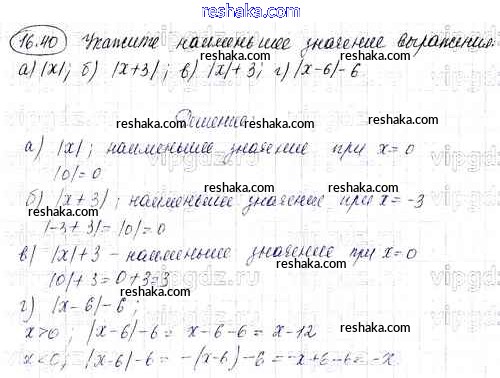 www.reshaka.com
16.40 Укажите наименьшее значение выражения:
а) |x|; б) |x+3|; в) |x|+3; г) |x-6|-6
reshaka.com reshaka.com
Решение:
reshaka.com
а) |x|; наименьшее значение при x=0
|0|=0
reshaka.com
б) |x+3|; наименьшее значение при x=-3
reshaka.com reshaka.com
|-3+3|=|0|=0
в) |x|+3 - наименьшее значение при x=0
reshaka.com reshaka.com
|0|+3=0+3=3
г) |x-6|-6;
reshaka.com reshaka.com
x>0; |x-6|-6= x-6-6= x-12
x<0; |x-6|-6= -(x-6)-6=-x+6-6=-x
reshaka.com reshaka.com